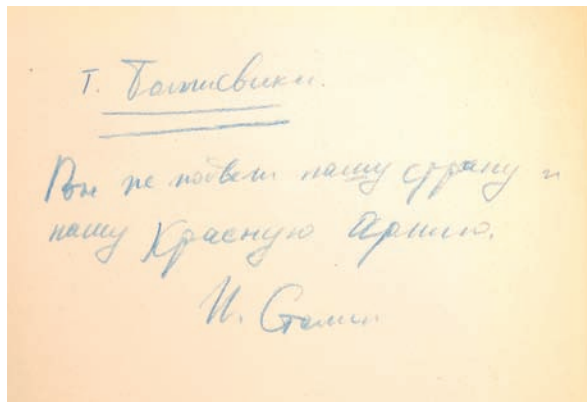 Т. Большевики.
Вы не подвели нашу страну и
нашу Красную Армию.
И. Сталин